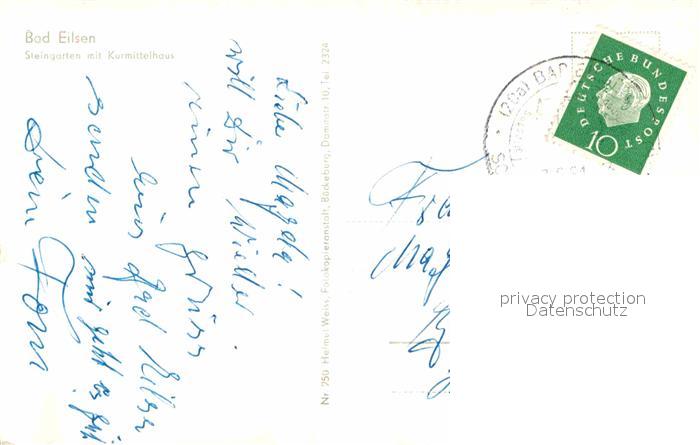 Bad Eilsen
Steingarten mit Kurmittelhaus
Liebe Magda!
will Dir wieder
einen
aus Bad Eilsen
senden mir geht es gut
Dein Tom
Nr 750 Helmut Weiss, Fotokopieranstalt, Bückeburg, Dammstr. 10, Tel. 2324
DEUTSCHE BUNDESPOST
10
(20a) BAD
Mag
privacy protection
Datenschutz